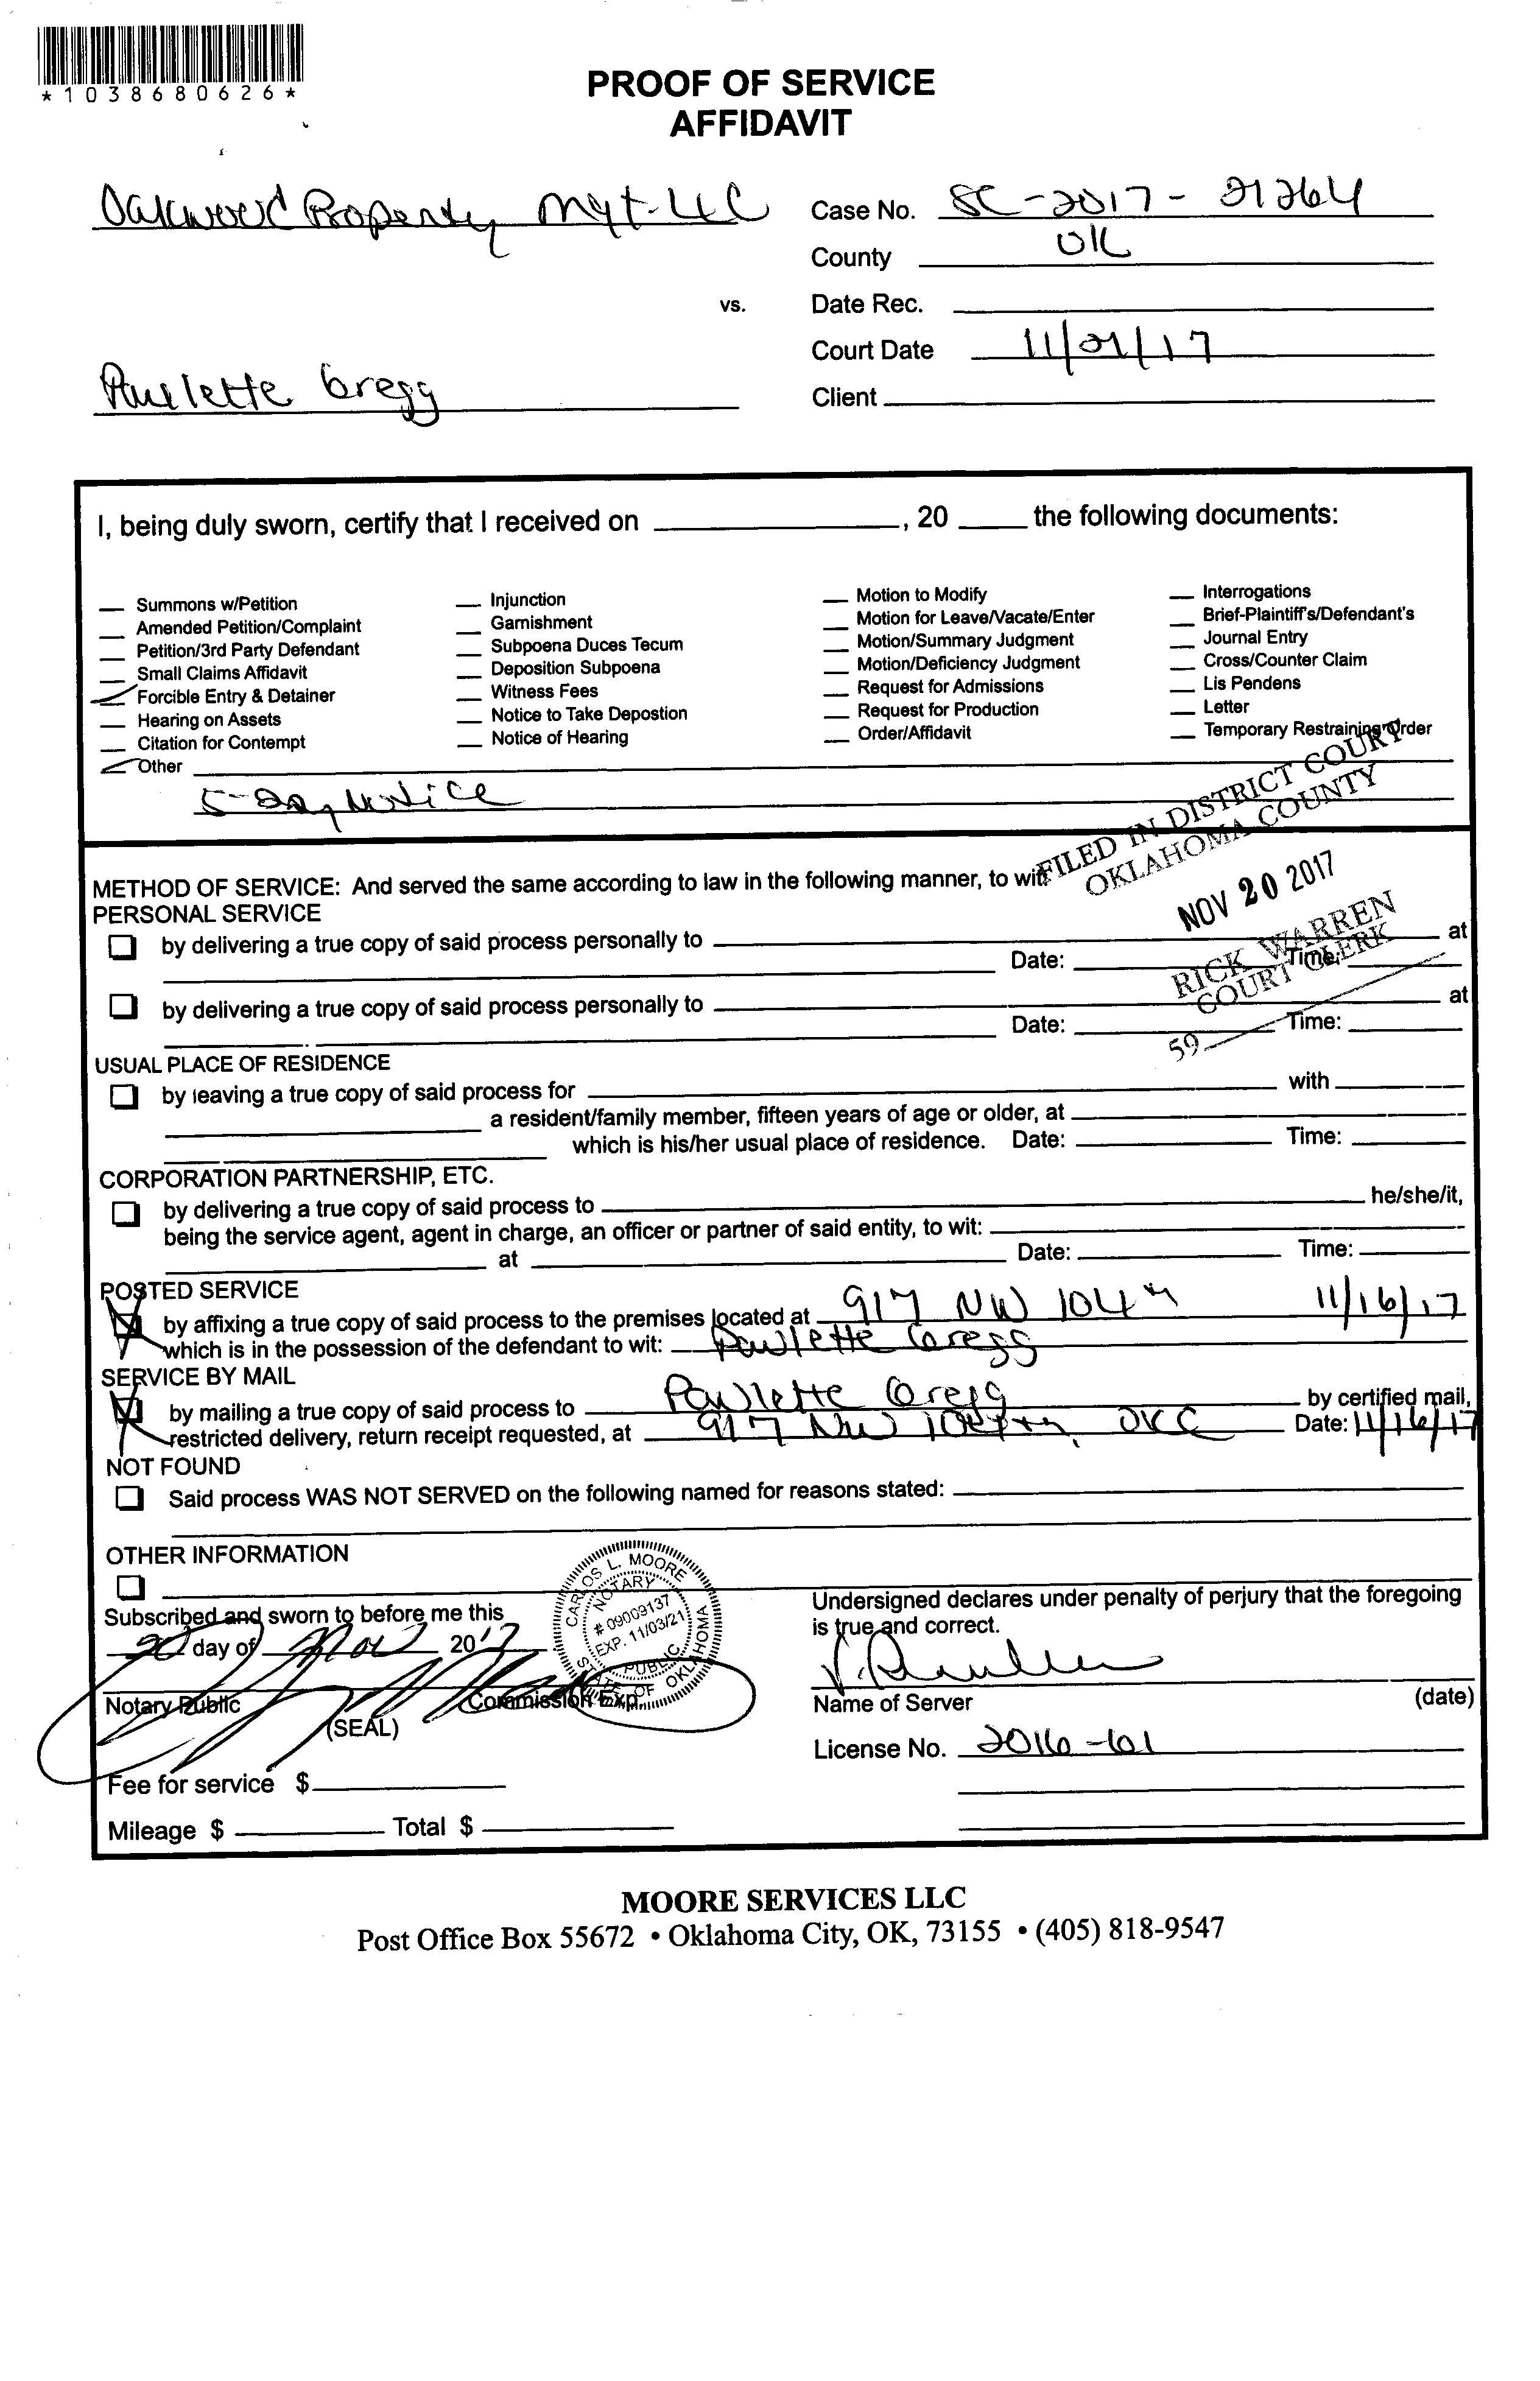 *1038680626*
PROOF OF SERVICE
AFFIDAVIT
Oakwood Property Mgt. LLC
Case No. SC-2017-21264
County OK
vs.
Date Rec.
Court Date 11/21/17
Paulette Gregg
Client
I, being duly sworn, certify that I received on ____, 20 ____ the following documents:
Summons w/Petition
Amended Petition/Complaint
Petition/3rd Party Defendant
Small Claims Affidavit
Forcible Entry & Detainer
Hearing on Assets
Citation for Contempt
Other
Injunction
Garnishment
Subpoena Duces Tecum
Deposition Subpoena
Witness Fees
Notice to Take Depostion
Notice of Hearing
Motion to Modify
Motion for Leave/Vacate/Enter
Motion/Summary Judgment
Motion/Deficiency Judgment
Request for Admissions
Request for Production
Order/Affidavit
Interrogations
Brief-Plaintiff's/Defendant's
Journal Entry
Cross/Counter Claim
Lis Pendens
Letter
Temporary Restraining Order
5-Day Notice
FILED IN DISTRICT COURT
OKLAHOMA COUNTY
NOV 20 2017
RICK WARREN
COURT CLERK
59
METHOD OF SERVICE: And served the same according to law in the following manner, to wit:
PERSONAL SERVICE
by delivering a true copy of said process personally to ____ at
Date: ____ Time:
by delivering a true copy of said process personally to ____ at
Date: ____ Time:
USUAL PLACE OF RESIDENCE
by leaving a true copy of said process for ____ with
a resident/family member, fifteen years of age or older, at
which is his/her usual place of residence. Date: ____ Time:
CORPORATION PARTNERSHIP, ETC.
by delivering a true copy of said process to ____ he/she/it,
being the service agent, agent in charge, an officer or partner of said entity, to wit:
at ____ Date: ____ Time:
POSTED SERVICE
by affixing a true copy of said process to the premises located at 917 NW 104th 11/16/17
which is in the possession of the defendant to wit: Paulette Gregg
SERVICE BY MAIL
by mailing a true copy of said process to Paulette Gregg by certified mail,
restricted delivery, return receipt requested, at 917 NW 104th, OKC Date: 11/16/17
NOT FOUND
Said process WAS NOT SERVED on the following named for reasons stated:
OTHER INFORMATION
Subscribed and sworn to before me this
20 day of Nov 2017
CARLOS L. MOORE
NOTARY PUBLIC
# 09009137
EXP. 11/03/21
STATE OF OKLAHOMA
Notary Public
(SEAL)
Commission Exp.
Undersigned declares under penalty of perjury that the foregoing
is true and correct.
Name of Server (date)
License No. 2016-61
Fee for service $
Mileage $ ____ Total $
MOORE SERVICES LLC
Post Office Box 55672 • Oklahoma City, OK, 73155 • (405) 818-9547